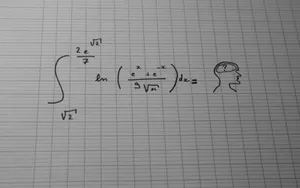 ∫_{√2}^{\frac{2e^{√2}}{7}} ln ( \frac{e^x + e^{-x}}{9√π} ) dx =
?